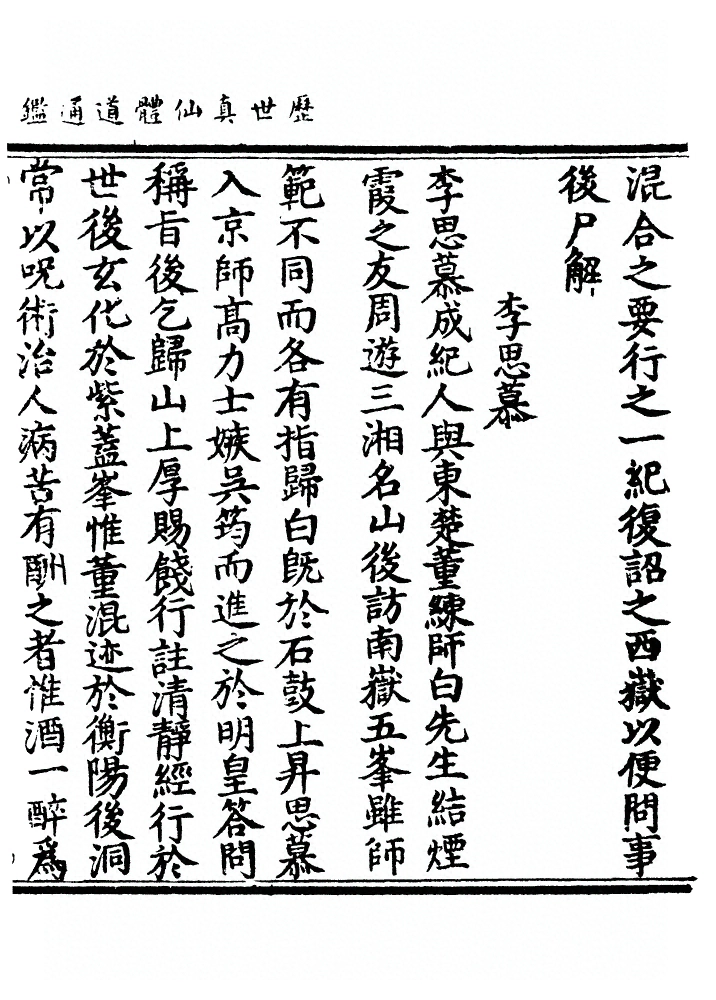 歷世真仙體道通鑑
混合之要行之一紀復詔之西嶽以便問事
後尸解
李思慕
李思慕成紀人與東楚董練師白先生結煙
霞之友周遊三湘名山後訪南嶽五峯雖師
範不同而各有指歸白既於石鼓上昇思慕
入京師高力士嫉吳筠而進之於明皇答問
稱旨後乞歸山上厚賜餞行註清靜經行於
世後玄化於紫蓋峯惟董混迹於衡陽後洞
常以呪術治人病苦有酬之者惟酒一醉爲